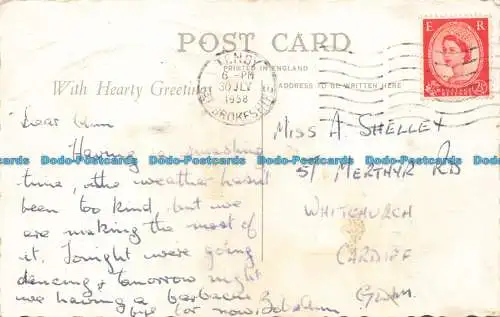 POST CARD
TENBY
6 - PM
30 JLY
1958
PEMBROKESHIRE
PRINTED IN ENGLAND
ADDRESS TO BE WRITTEN HERE
With Hearty Greetings
E R
POSTAGE REVENUE
2½D
Dear Ann
Having a smashing
time, the weather hasnt
been too kind, but we
are making the most of
it. Tonight were going
dancing & tomorrow night
we having a barbecue
bye for now
MISS A. SHELLEY
51 MERTHYR RD
WHITCHURCH
CARDIFF
Glam.
Dodo-Postcards Dodo-Postcards Dodo-Postcards Dodo-Postcards Dodo-Postcards